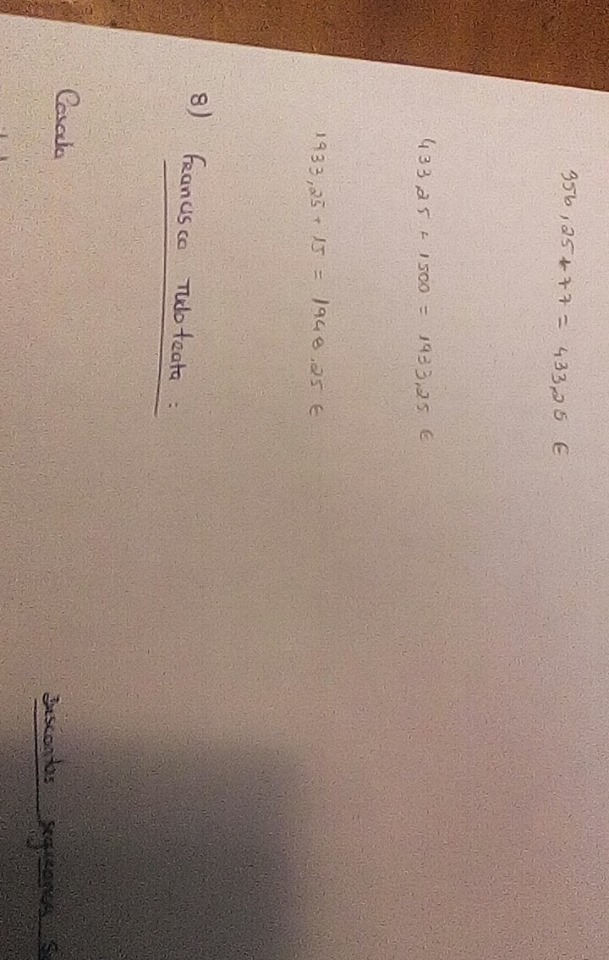 356,25+77 = 433,25 €
433,25 + 1500 = 1933,25 €
1933,25 + 15 = 1948,25 €
8) Francisco Tudo trata :
Casado
Descontos segurança